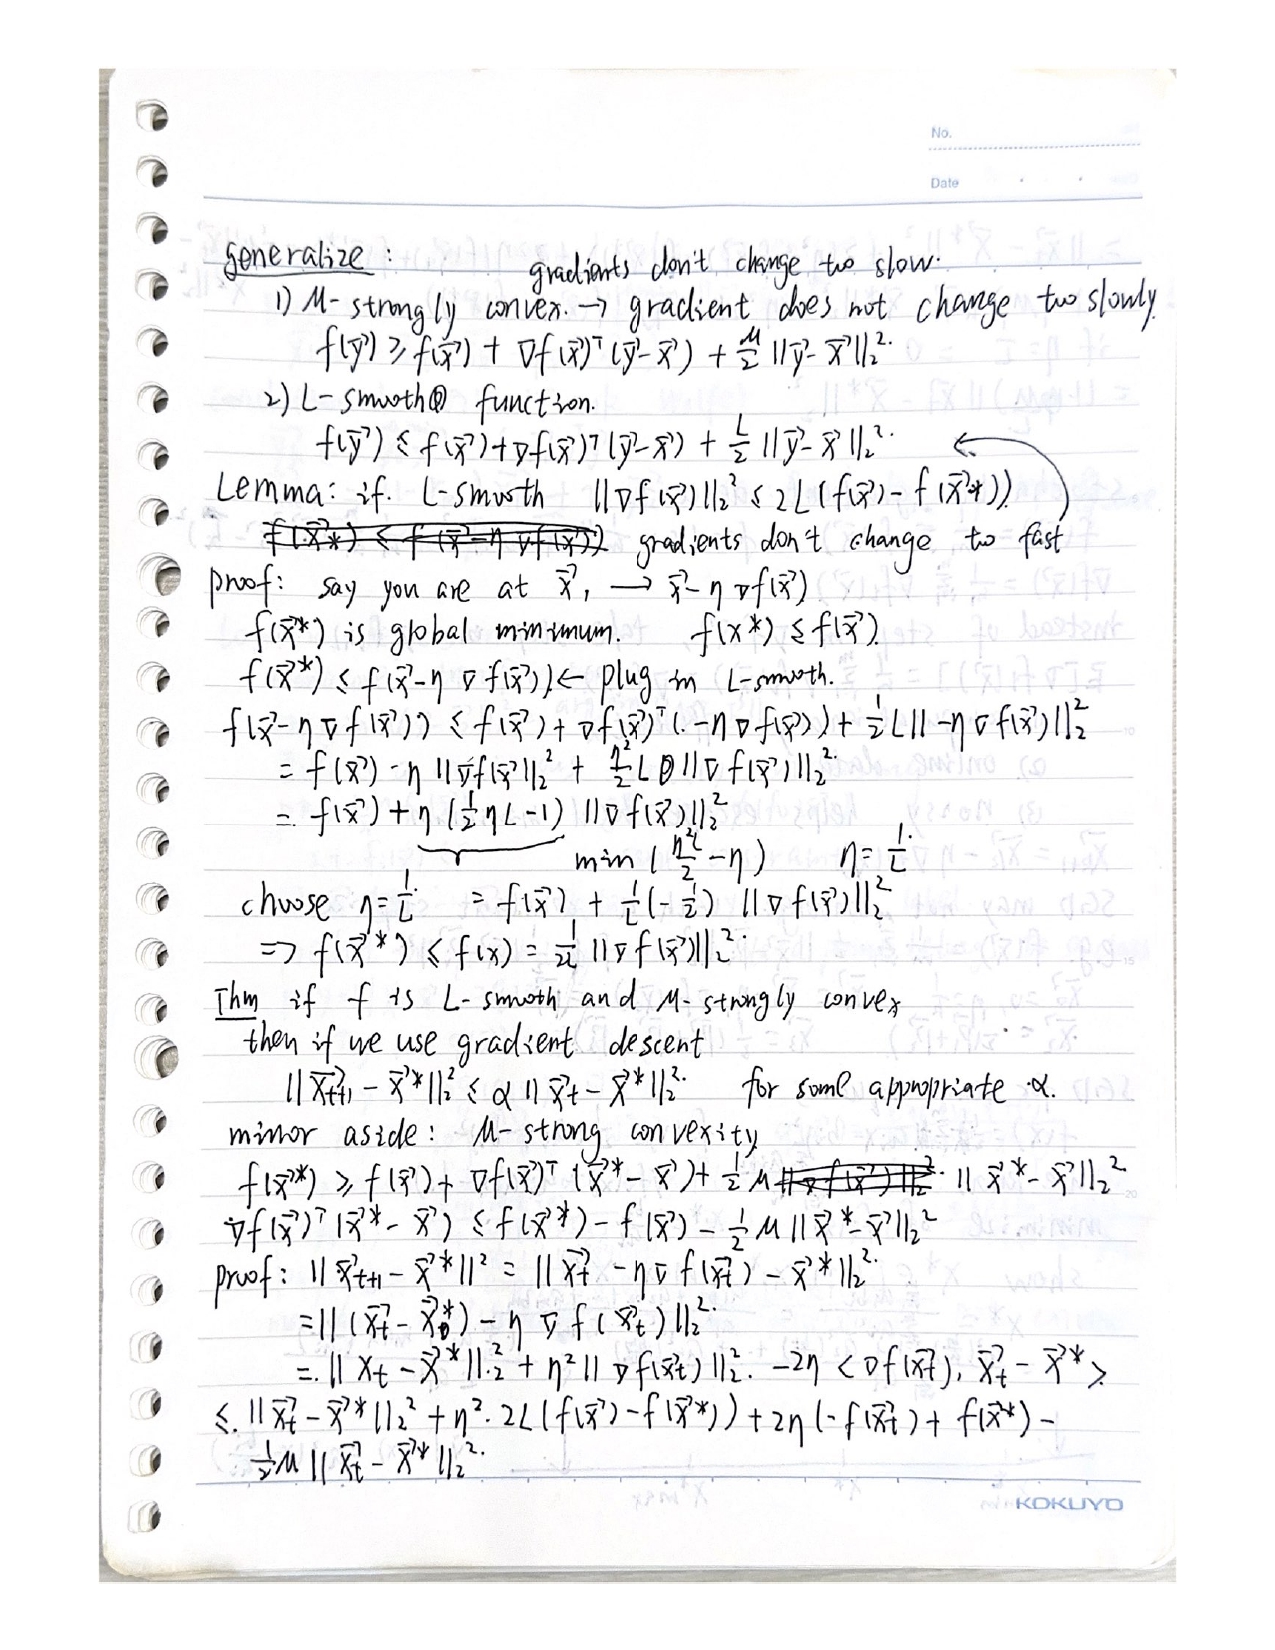 No.
Date
Generalize:
gradients don't change too slow.
1) μ-strongly convex. → gradient does not change too slowly.
f(y⃗) ≥ f(x⃗) + ∇f(x⃗)ᵀ(y⃗-x⃗) + μ/2 ||y⃗-x⃗||₂².
2) L-smooth function.
f(y⃗) ≤ f(x⃗) + ∇f(x⃗)ᵀ(y⃗-x⃗) + L/2 ||y⃗-x⃗||₂².
Lemma: if. L-smooth ||∇f(x⃗)||₂² ≤ 2L(f(x⃗) - f(x⃗*))
f(x⃗*) ≤ f(x⃗-η∇f(x⃗)) gradients don't change to fast
proof: say you are at x⃗, → x⃗-η∇f(x⃗)
f(x⃗*) is global minimum. f(x*) ≤ f(x⃗).
f(x⃗*) ≤ f(x⃗-η∇f(x⃗)) ← plug in L-smooth.
f(x⃗-η∇f(x⃗)) ≤ f(x⃗) + ∇f(x⃗)ᵀ(-η∇f(x⃗)) + ½L||-η∇f(x⃗)||₂²
= f(x⃗) - η||∇f(x⃗)||₂² + η²/2 L ||∇f(x⃗)||₂².
= f(x⃗) + η(½ηL-1) ||∇f(x⃗)||₂²
min (η²L/2 - η) η = 1/L.
choose η = 1/L. = f(x⃗) + 1/L(-½) ||∇f(x⃗)||₂²
=> f(x⃗*) ≤ f(x) = 1/2L ||∇f(x⃗)||₂².
Thm if f is L-smooth and μ-strongly convex
then if we use gradient descent
||x⃗ₜ₊₁ - x⃗*||₂² ≤ α ||x⃗ₜ - x⃗*||₂². for some appropriate α.
minor aside: μ-strong convexity
f(x⃗*) ≥ f(x⃗) + ∇f(x⃗)ᵀ(x⃗*-x⃗) + ½μ ||∇f(x⃗)||₂². ||x⃗*-x⃗||₂²
∇f(x⃗)ᵀ(x⃗*-x⃗) ≤ f(x⃗*) - f(x⃗) - ½μ||x⃗*-x⃗||₂²
proof: ||x⃗ₜ₊₁ - x⃗*||² = ||x⃗ₜ - η∇f(x⃗ₜ) - x⃗*||₂².
= ||(x⃗ₜ - x⃗*) - η∇f(x⃗ₜ)||₂².
= ||xₜ - x⃗*||₂² + η²||∇f(x⃗ₜ)||₂². -2η <∇f(x⃗ₜ), x⃗ₜ - x⃗*>
≤ ||x⃗ₜ - x⃗*||₂² + η². 2L(f(x⃗) - f(x⃗*)) + 2η(-f(x⃗ₜ) + f(x⃗*) -
½μ||x⃗ₜ - x⃗*||₂².
KOKUYO